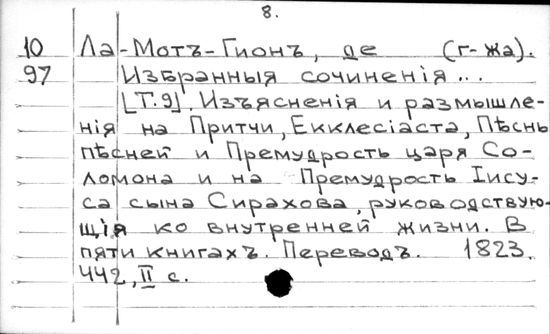 8.
10 Ла-Мотъ-Гионъ, де (г-жа).
97 Избранныя сочиненія...
[Т.9]. Изъясненія и размышле-
нія на Притчи, Екклесіаста, Пѣснь
пѣсней и Премудрость царя Со-
ломона и на Премудрость Іису-
са сына Сирахова, руководствую-
щія ко внутренней жизни. В
пяти книгахъ. Переводъ. 1823.
442, II с.